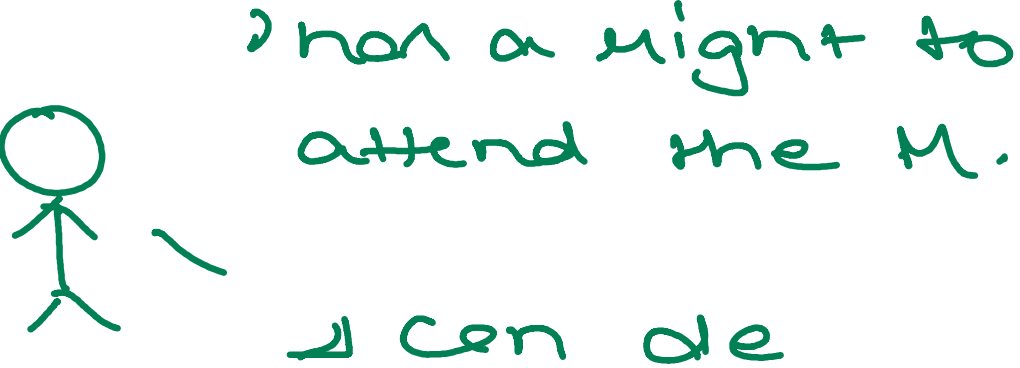 has a right to
attend the M.
Can de